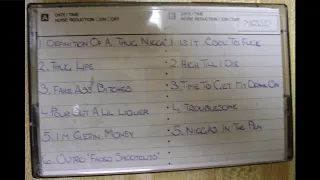 A DATE / TIME
NOISE REDUCTION □ON □OFF
B DATE / TIME
NOISE REDUCTION □ON □OFF
1. DEFINITION OF A THUG NIGGA
2. THUG LIFE
3. FAKE ASS BITCHES
4. POUR OUT A LIL LIQUER
5. I'M GETTIN MONEY
6. OUTRO "FADED
1. IS IT COOL TO FUCK
2. RICH TILL I DIE
3. TIME TO GET IT COME ON
4. TROUBLESOME
5. NIGGAS IN THE PEN